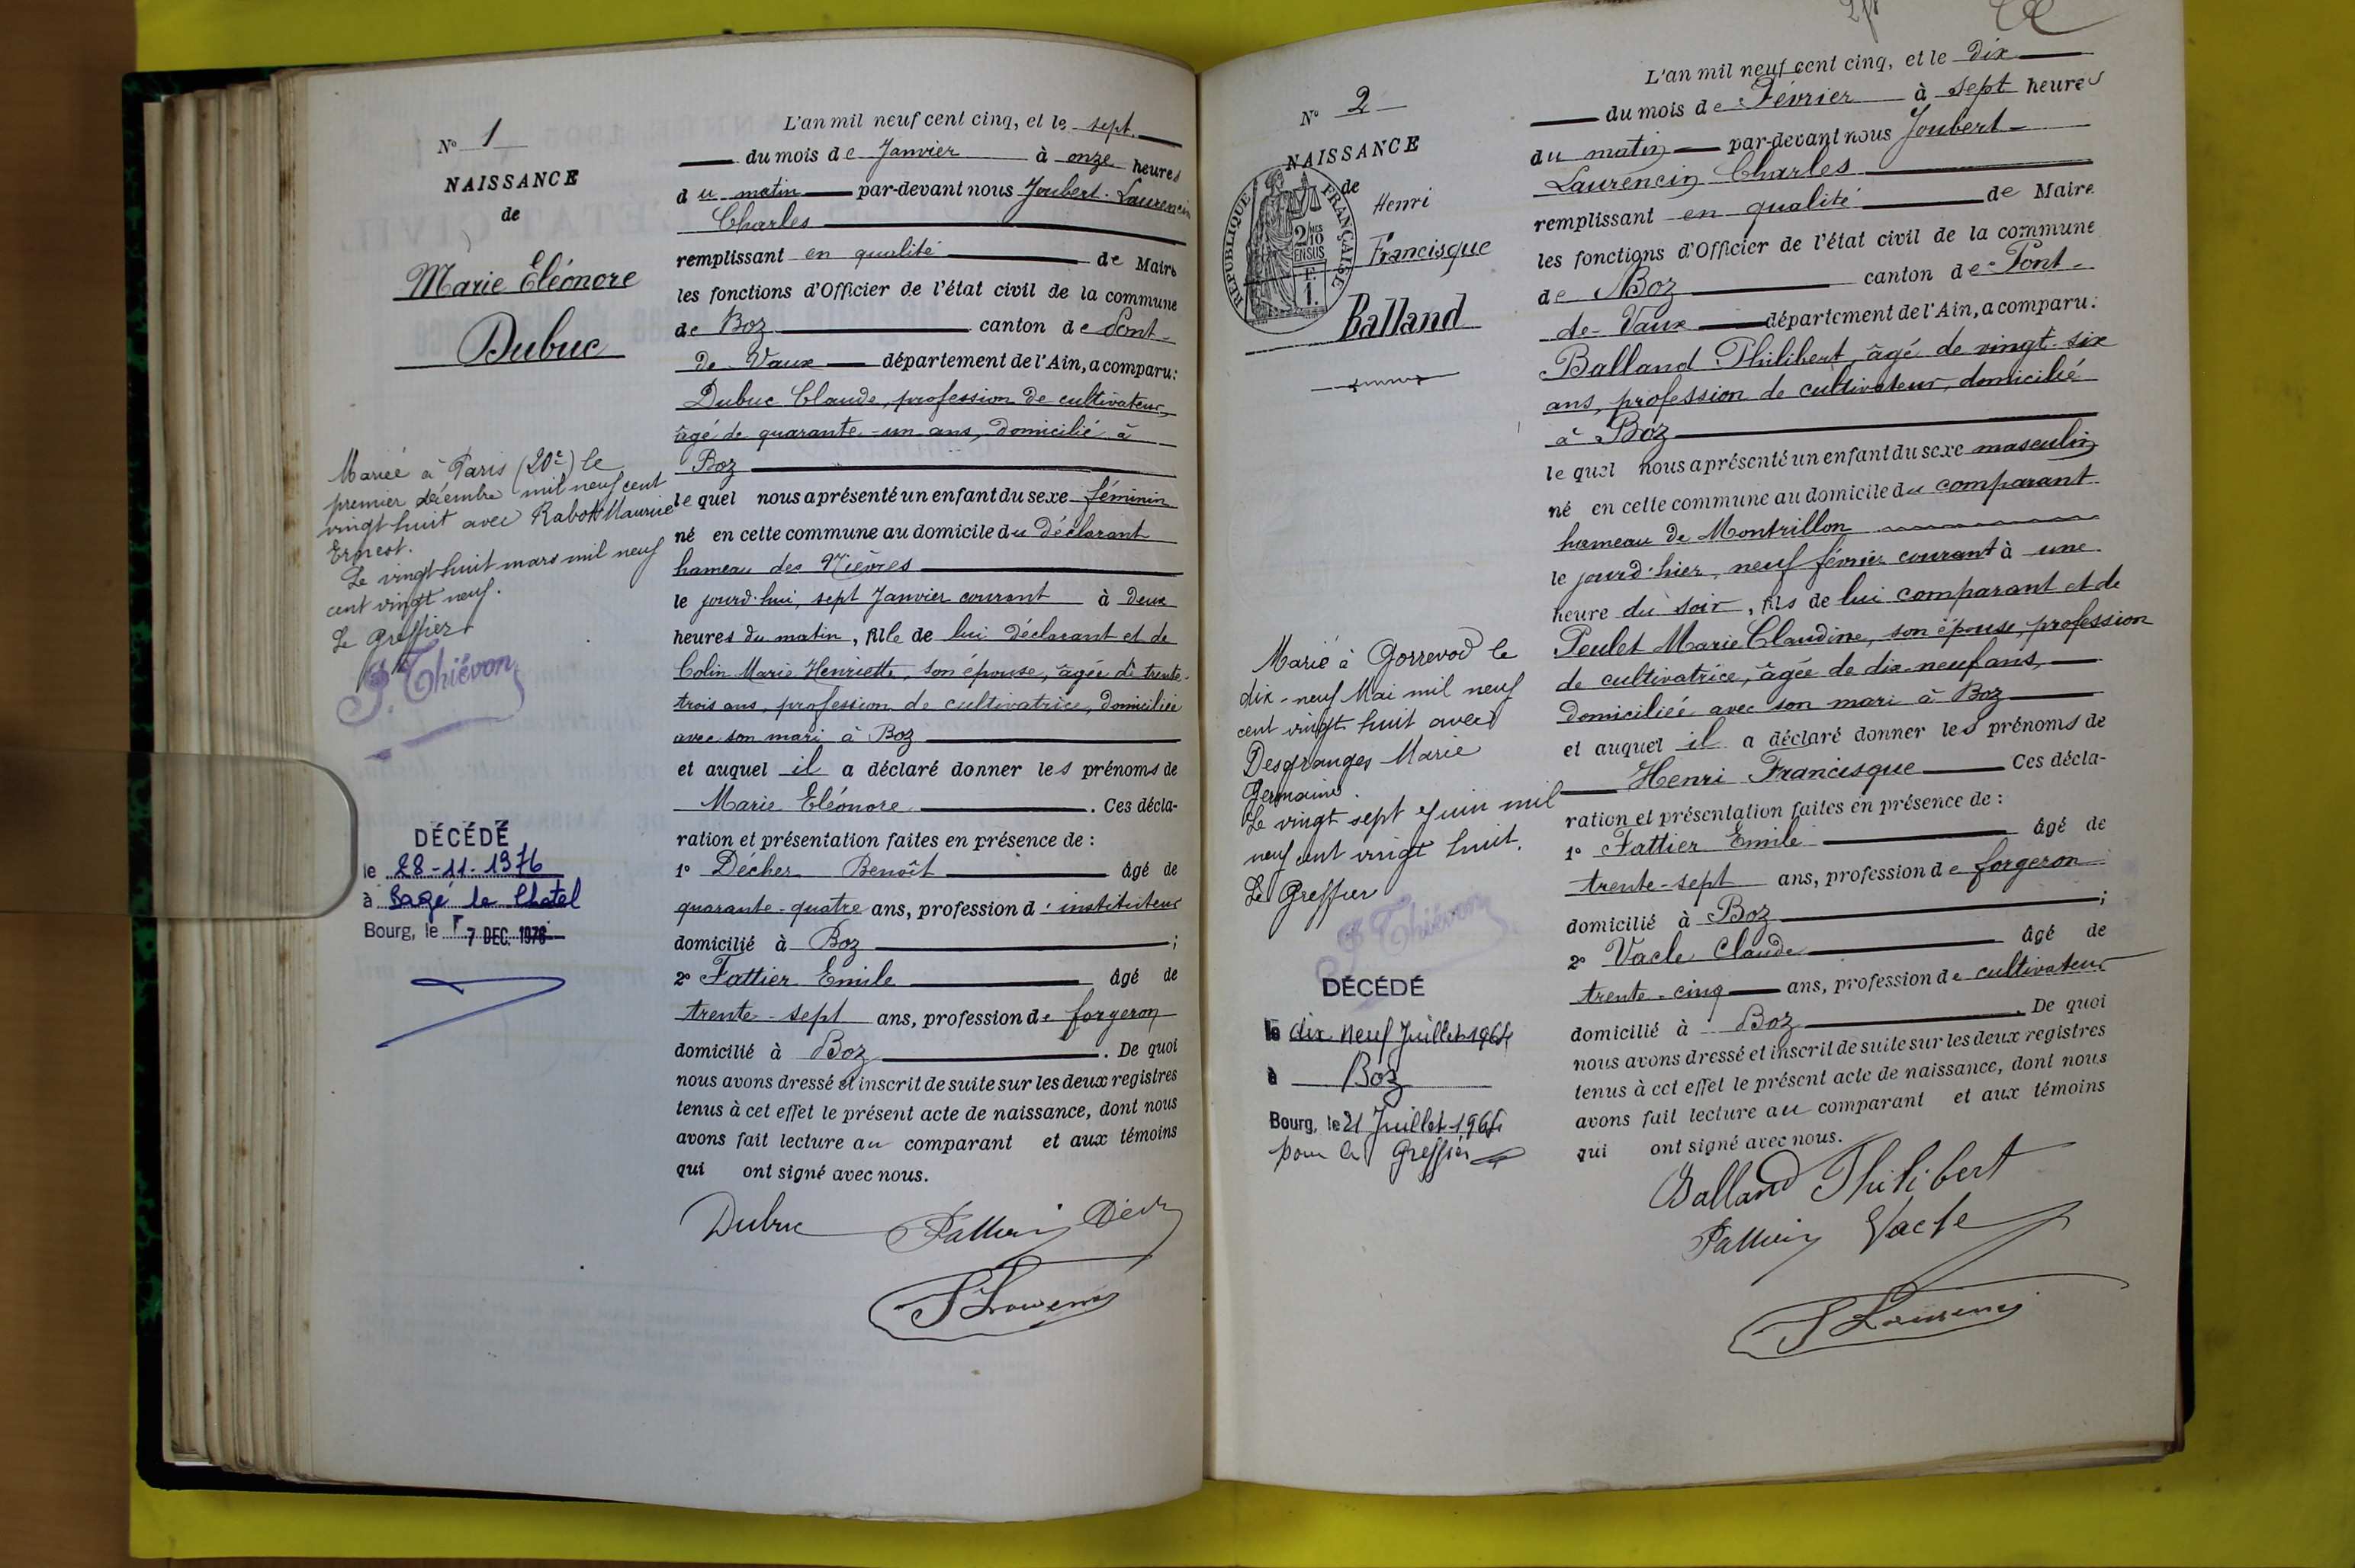 N° 1
NAISSANCE
de
Marie Eléonore
Dubuc
Mariée à Paris (20e) le
premier décembre mil neuf cent
vingt huit avec Rabot Maurice
Ernest.
Le vingt huit mars mil neuf
cent vingt neuf.
Le Greffier
P. Thiévon
DÉCÉDÉ
le 28-11-1976
à Bagé le Chatel
Bourg, le 7 DEC. 1976
L'an mil neuf cent cinq, et le sept
du mois de Janvier à onze heures
du matin par-devant nous Joubert-Laurencin
Charles
remplissant en qualité de Maire
les fonctions d'Officier de l'état civil de la commune
de Boz canton de Pont-
de-Vaux département de l'Ain, a comparu:
Dubuc Claude, profession de cultivateur,
âgé de quarante-un ans, domicilié à
Boz
lequel nous a présenté un enfant du sexe féminin
né en cette commune au domicile du déclarant
hameau des
le jourd'hui, sept Janvier courant à deux
heures du matin, fille de lui déclarant et de
Colin Marie Henriette, son épouse, âgée de trente-
trois ans, profession de cultivatrice, domiciliée
avec son mari à Boz
et auquel il a déclaré donner les prénoms de
Marie Eléonore. Ces décla-
ration et présentation faites en présence de :
1° Décher Benoît âgé de
quarante-quatre ans, profession d'instituteur
domicilié à Boz ;
2° Fattier Emile âgé de
trente-sept ans, profession de forgeron
domicilié à Boz. De quoi
nous avons dressé et inscrit de suite sur les deux registres
tenus à cet effet le présent acte de naissance, dont nous
avons fait lecture au comparant et aux témoins
qui ont signé avec nous.
Dubuc Fattier
N° 2
NAISSANCE
de
Henri
Francisque
Balland
RÉPUBLIQUE FRANÇAISE
2/10 MES
EN SUS
F.
1.
Marié à Gorrevod le
dix-neuf Mai mil neuf
cent vingt huit avec
Desgranges Marie
Germaine.
Le vingt sept Juin mil
neuf cent vingt huit.
Le Greffier
P. Thiévon
DÉCÉDÉ
le dix neuf Juillet
à Boz
Bourg, le 21 Juillet
pour le Greffier
L'an mil neuf cent cinq, et le dix
du mois de Février à sept heures
du matin par-devant nous Joubert-
Laurencin Charles
remplissant en qualité de Maire
les fonctions d'Officier de l'état civil de la commune
de Boz canton de Pont-
de-Vaux département de l'Ain, a comparu:
Balland Philibert, âgé de vingt-six
ans, profession de cultivateur, domicilié
à Boz
lequel nous a présenté un enfant du sexe masculin
né en cette commune au domicile du comparant
hameau de Montrillon
le jourd'hier, neuf février courant à une
heure du soir, fils de lui comparant et de
Peulet Marie Claudine, son épouse, profession
de cultivatrice, âgée de dix-neuf ans,
domiciliée avec son mari à Boz
et auquel il a déclaré donner les prénoms de
Henri Francisque Ces décla-
ration et présentation faites en présence de :
1° Fattier Emile âgé de
trente-sept ans, profession de forgeron
domicilié à Boz ;
2° Vacle Claude âgé de
trente-cinq ans, profession de cultivateur
domicilié à Boz. De quoi
nous avons dressé et inscrit de suite sur les deux registres
tenus à cet effet le présent acte de naissance, dont nous
avons fait lecture au comparant et aux témoins
qui ont signé avec nous.
Balland Philibert
Fattier Vacle